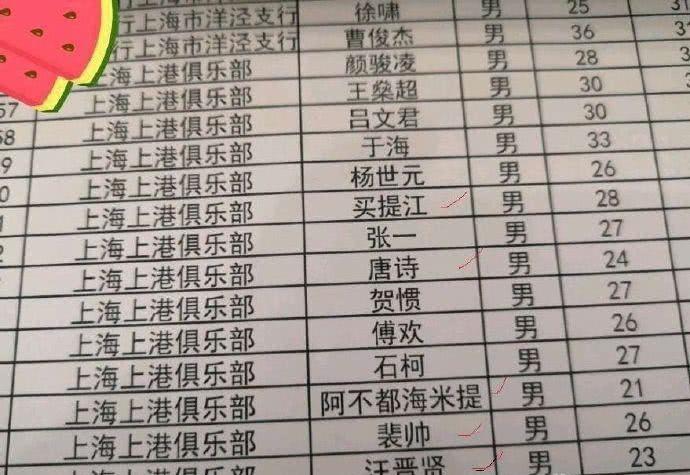 行上海市洋泾支行 徐啸 男 25 31
行上海市洋泾支行 曹俊杰 男 36
上海上港俱乐部 颜骏凌 男 28
57 上海上港俱乐部 王燊超 男 30
58 上海上港俱乐部 吕文君 男 30
9 上海上港俱乐部 于海 男 33
0 上海上港俱乐部 杨世元 男 26
1 上海上港俱乐部 买提江 男 28
2 上海上港俱乐部 张一 男 27
上海上港俱乐部 唐诗 男 24
上海上港俱乐部 贺惯 男 27
上海上港俱乐部 傅欢 男 26
上海上港俱乐部 石柯 男 27
上海上港俱乐部 阿不都海米提 男 21
上海上港俱乐部 裴帅 男 26
上海上港俱乐部 汪晋贤 男 23